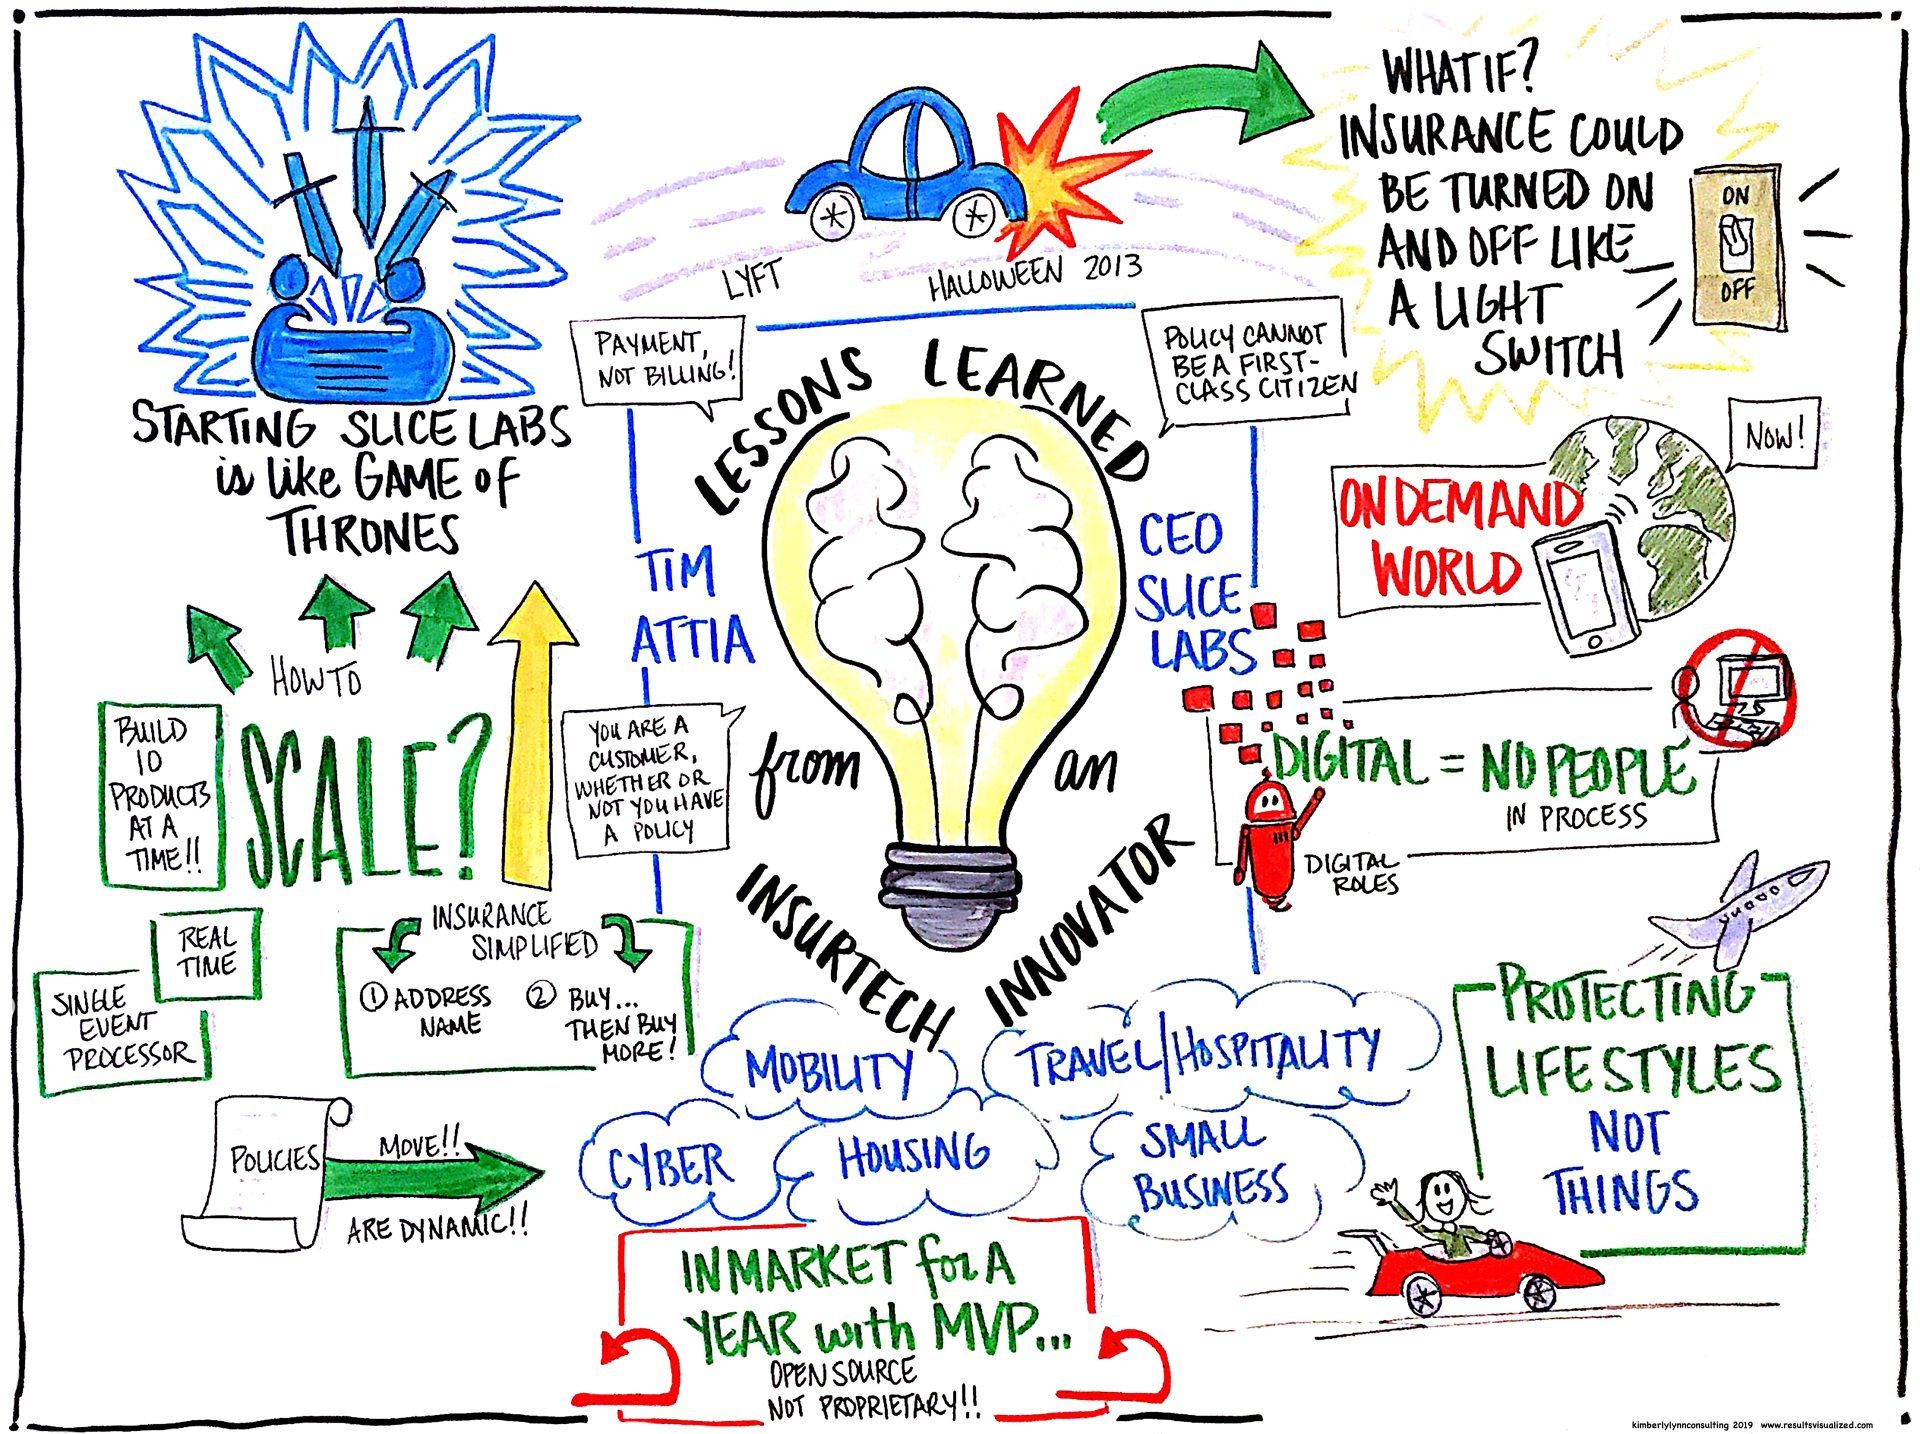 STARTING SLICE LABS
is like GAME of
THRONES
LYFT
HALLOWEEN 2013
WHAT IF?
INSURANCE COULD
BE TURNED ON
AND OFF LIKE
A LIGHT
SWITCH
ON
OFF
PAYMENT,
NOT BILLING!
POLICY CANNOT
BE A FIRST-
CLASS CITIZEN
LESSONS LEARNED
from an
INSURTECH INNOVATOR
TIM
ATTIA
CEO
SLICE
LABS
YOU ARE A
CUSTOMER,
WHETHER OR
NOT YOU HAVE
A POLICY
NOW!
ON DEMAND
WORLD
DIGITAL = NO PEOPLE
IN PROCESS
DIGITAL
ROLES
HOW TO
SCALE?
BUILD
10
PRODUCTS
AT A
TIME!!
REAL
TIME
SINGLE
EVENT
PROCESSOR
INSURANCE
SIMPLIFIED
① ADDRESS
NAME
② BUY...
THEN BUY
MORE!
POLICIES
MOVE!!
ARE DYNAMIC!!
MOBILITY
TRAVEL/HOSPITALITY
CYBER
HOUSING
SMALL
BUSINESS
PROTECTING
LIFESTYLES
NOT
THINGS
IN MARKET for A
YEAR with MVP...
OPEN SOURCE
NOT PROPRIETARY!!
kimberlylynnconsulting 2019 www.resultsvisualized.com